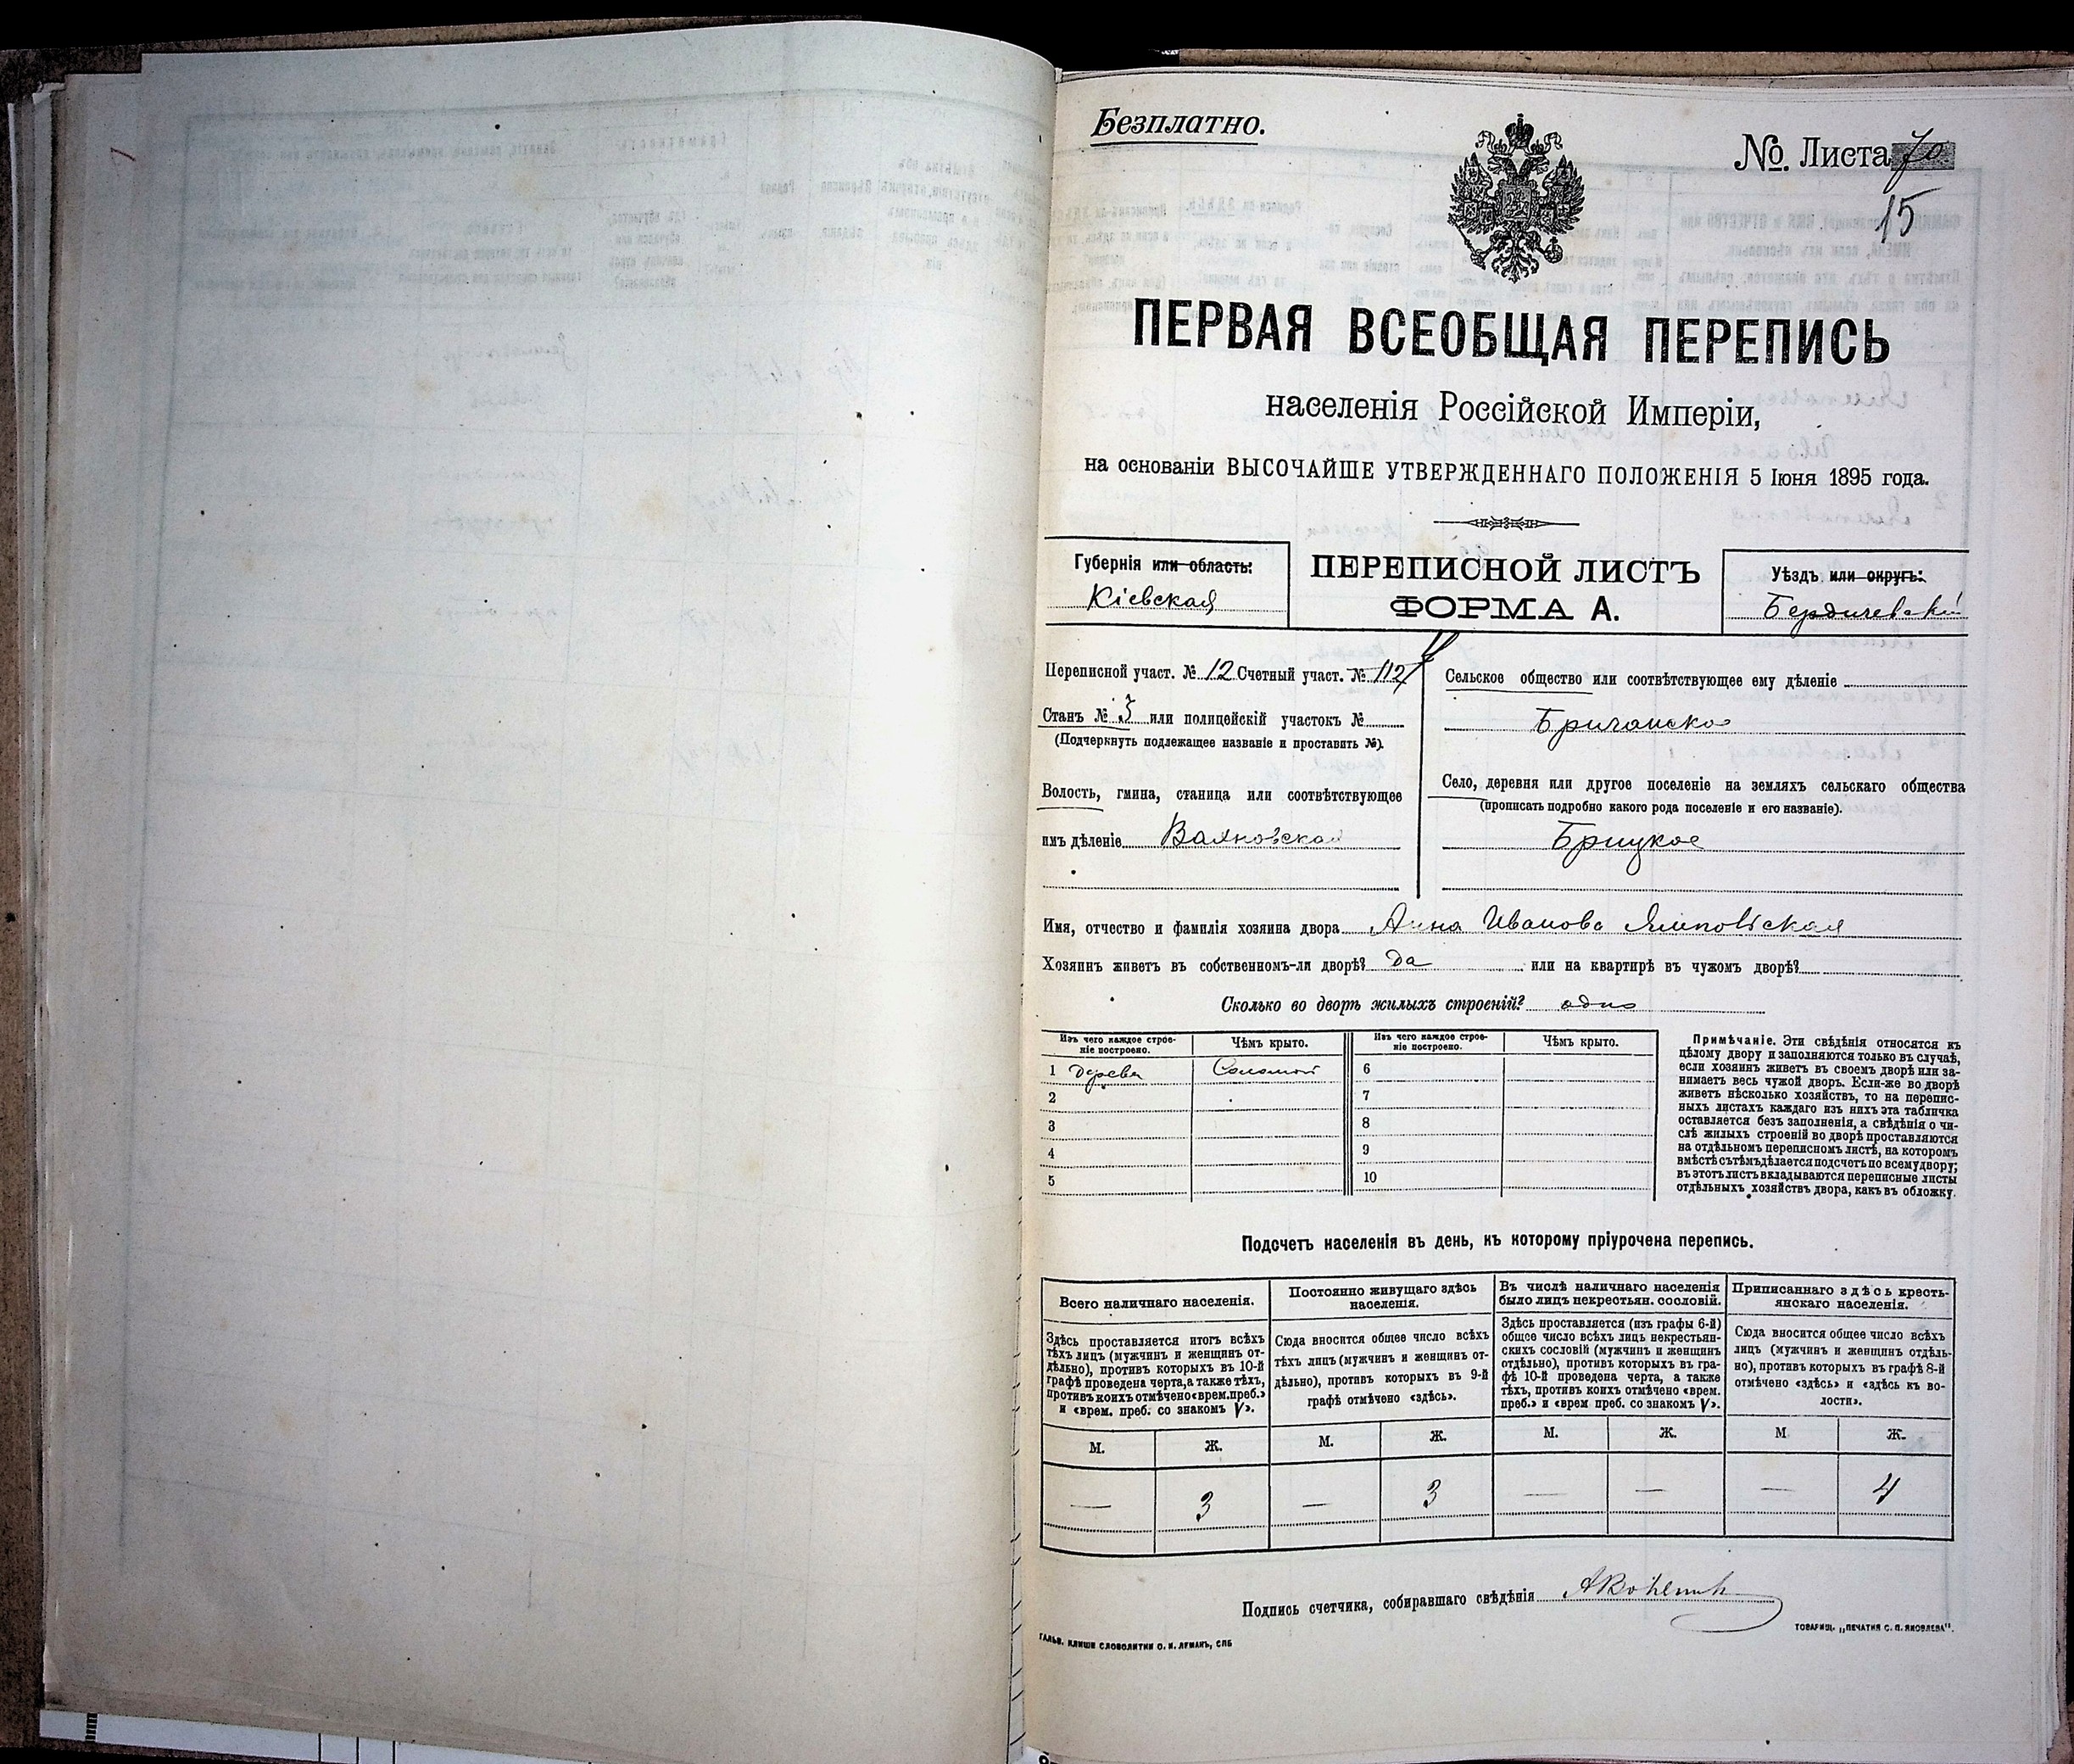 Безплатно.
№ Листа 70
15
ПЕРВАЯ ВСЕОБЩАЯ ПЕРЕПИСЬ
населенія Россійской Имперіи,
на основаніи ВЫСОЧАЙШЕ УТВЕРЖДЕННАГО ПОЛОЖЕНІЯ 5 Іюня 1895 года.
Губернія или область:
Кіевская
ПЕРЕПИСНОЙ ЛИСТЪ
ФОРМА А.
Уѣздъ или округъ:
Бердичевскій
Переписной участ. № 12 Счетный участ. № 112
Станъ № 3 или полицейскій участокъ №
(Подчеркнуть подлежащее названіе и проставить №).
Волость, гмина, станица или соотвѣтствующее
имъ дѣленіе Вахновская
Сельское общество или соотвѣтствующее ему дѣленіе
Село, деревня или другое поселеніе на земляхъ сельскаго общества
(прописать подробно какого рода поселеніе и его названіе).
Брицкое
Имя, отчество и фамилія хозяина двора Анна Иванова Ямповская
Хозяинъ живетъ въ собственномъ-ли дворѣ? да или на квартирѣ въ чужомъ дворѣ?
Сколько во дворѣ жилыхъ строеній? одно
Изъ чего каждое строе-
ніе построено.
Чѣмъ крыто.
Изъ чего каждое строе-
ніе построено.
Чѣмъ крыто.
1 дерева Соломой 6
2 7
3 8
4 9
5 10
Примѣчаніе. Эти свѣдѣнія относятся къ
цѣлому двору и заполняются только въ случаѣ,
если хозяинъ живетъ въ своемъ дворѣ или за-
нимаетъ весь чужой дворъ. Если-же во дворѣ
живетъ нѣсколько хозяйствъ, то на перепис-
ныхъ листахъ каждаго изъ нихъ эта табличка
оставляется безъ заполненія, а свѣдѣнія о чи-
слѣ жилыхъ строеній во дворѣ проставляются
на отдѣльномъ переписномъ листѣ, на которомъ
вмѣстѣ съ тѣмъ дѣлается подсчетъ по всему двору;
въ этотъ листъ вкладываются переписные листы
отдѣльныхъ хозяйствъ двора, какъ въ обложку.
Подсчетъ населенія въ день, къ которому пріурочена перепись.
Всего наличнаго населенія.
Здѣсь проставляется итогъ всѣхъ
тѣхъ лицъ (мужчинъ и женщинъ от-
дѣльно), противъ которыхъ въ 10-й
графѣ проведена черта, а также тѣхъ,
противъ коихъ отмѣчено «врем. преб.»
и «врем. преб. со знакомъ V».
Постоянно живущаго здѣсь
населенія.
Сюда вносится общее число всѣхъ
тѣхъ лицъ (мужчинъ и женщинъ от-
дѣльно), противъ которыхъ въ 9-й
графѣ отмѣчено «здѣсь».
Въ числѣ наличнаго населенія
было лицъ некрестьян. сословій.
Здѣсь проставляется (изъ графы 6-й)
общее число всѣхъ лицъ некрестьян-
скихъ сословій (мужчинъ и женщинъ
отдѣльно), противъ которыхъ въ гра-
фѣ 10-й проведена черта, а также
тѣхъ, противъ коихъ отмѣчено «врем.
преб.» и «врем преб. со знакомъ V».
Приписаннаго здѣсь кресть-
янскаго населенія.
Сюда вносится общее число всѣхъ
лицъ (мужчинъ и женщинъ отдѣль-
но), противъ которыхъ въ графѣ 8-й
отмѣчено «здѣсь» и «здѣсь къ во-
лости».
М. Ж. М. Ж. М. Ж. М Ж.
— 3 — 3 — — — 4
Подпись счетчика, собиравшаго свѣдѣнія
ГАЛЬВ. КЛИШЕ СЛОВОЛИТНИ О. И. ЛЕМАНЪ, СПБ
ТОВАРИЩ. „ПЕЧАТНЯ С. П. ЯКОВЛЕВА".